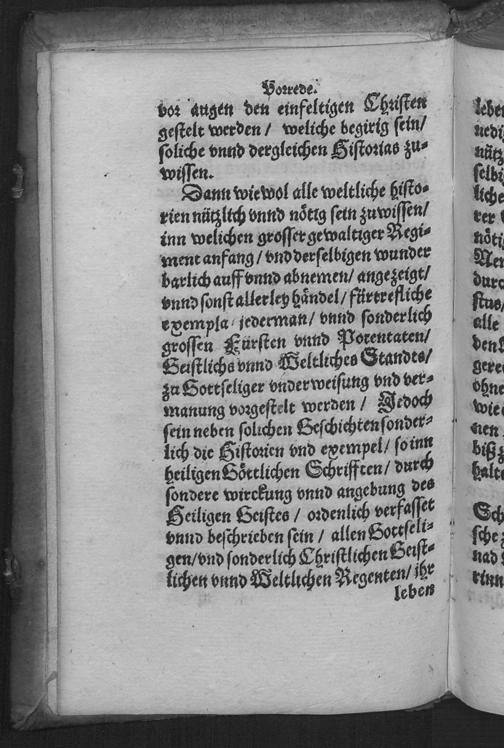 Vorrede.
vor augen den einfeltigen Christen
gestelt werden / weliche begirig sein/
soliche vnnd dergleichen Historias zu-
wissen.
Dann wiewol alle weltliche histo-
rien nützlich vnnd nötig sein zuwissen/
inn welichen grosser gewaltiger Regi-
ment anfang/ vnd derselbigen wunder
barlich auff vnnd abnemen/ angezeigt/
vnnd sonst allerley händel/ fürtrefliche
exempla/ jederman/ vnnd sonderlich
grossen Fürsten vnnd Potentaten/
Geistlichs vnnd Weltliches Standes/
zu Gottseliger vnderweisung vnd ver-
manung vorgestelt werden / Jedoch
sein neben solichen Geschichten sonder-
lich die Historien vnd exempel/ so inn
heiligen Göttlichen Schrifften/ durch
sondere wirckung vnnd angebung des
Heiligen Geistes / ordenlich verfasset
vnnd beschrieben sein / allen Gottseli-
gen/ vnd sonderlich Christlichen Geist-
lichen vnnd Weltlichen Regenten/ jhr
leben